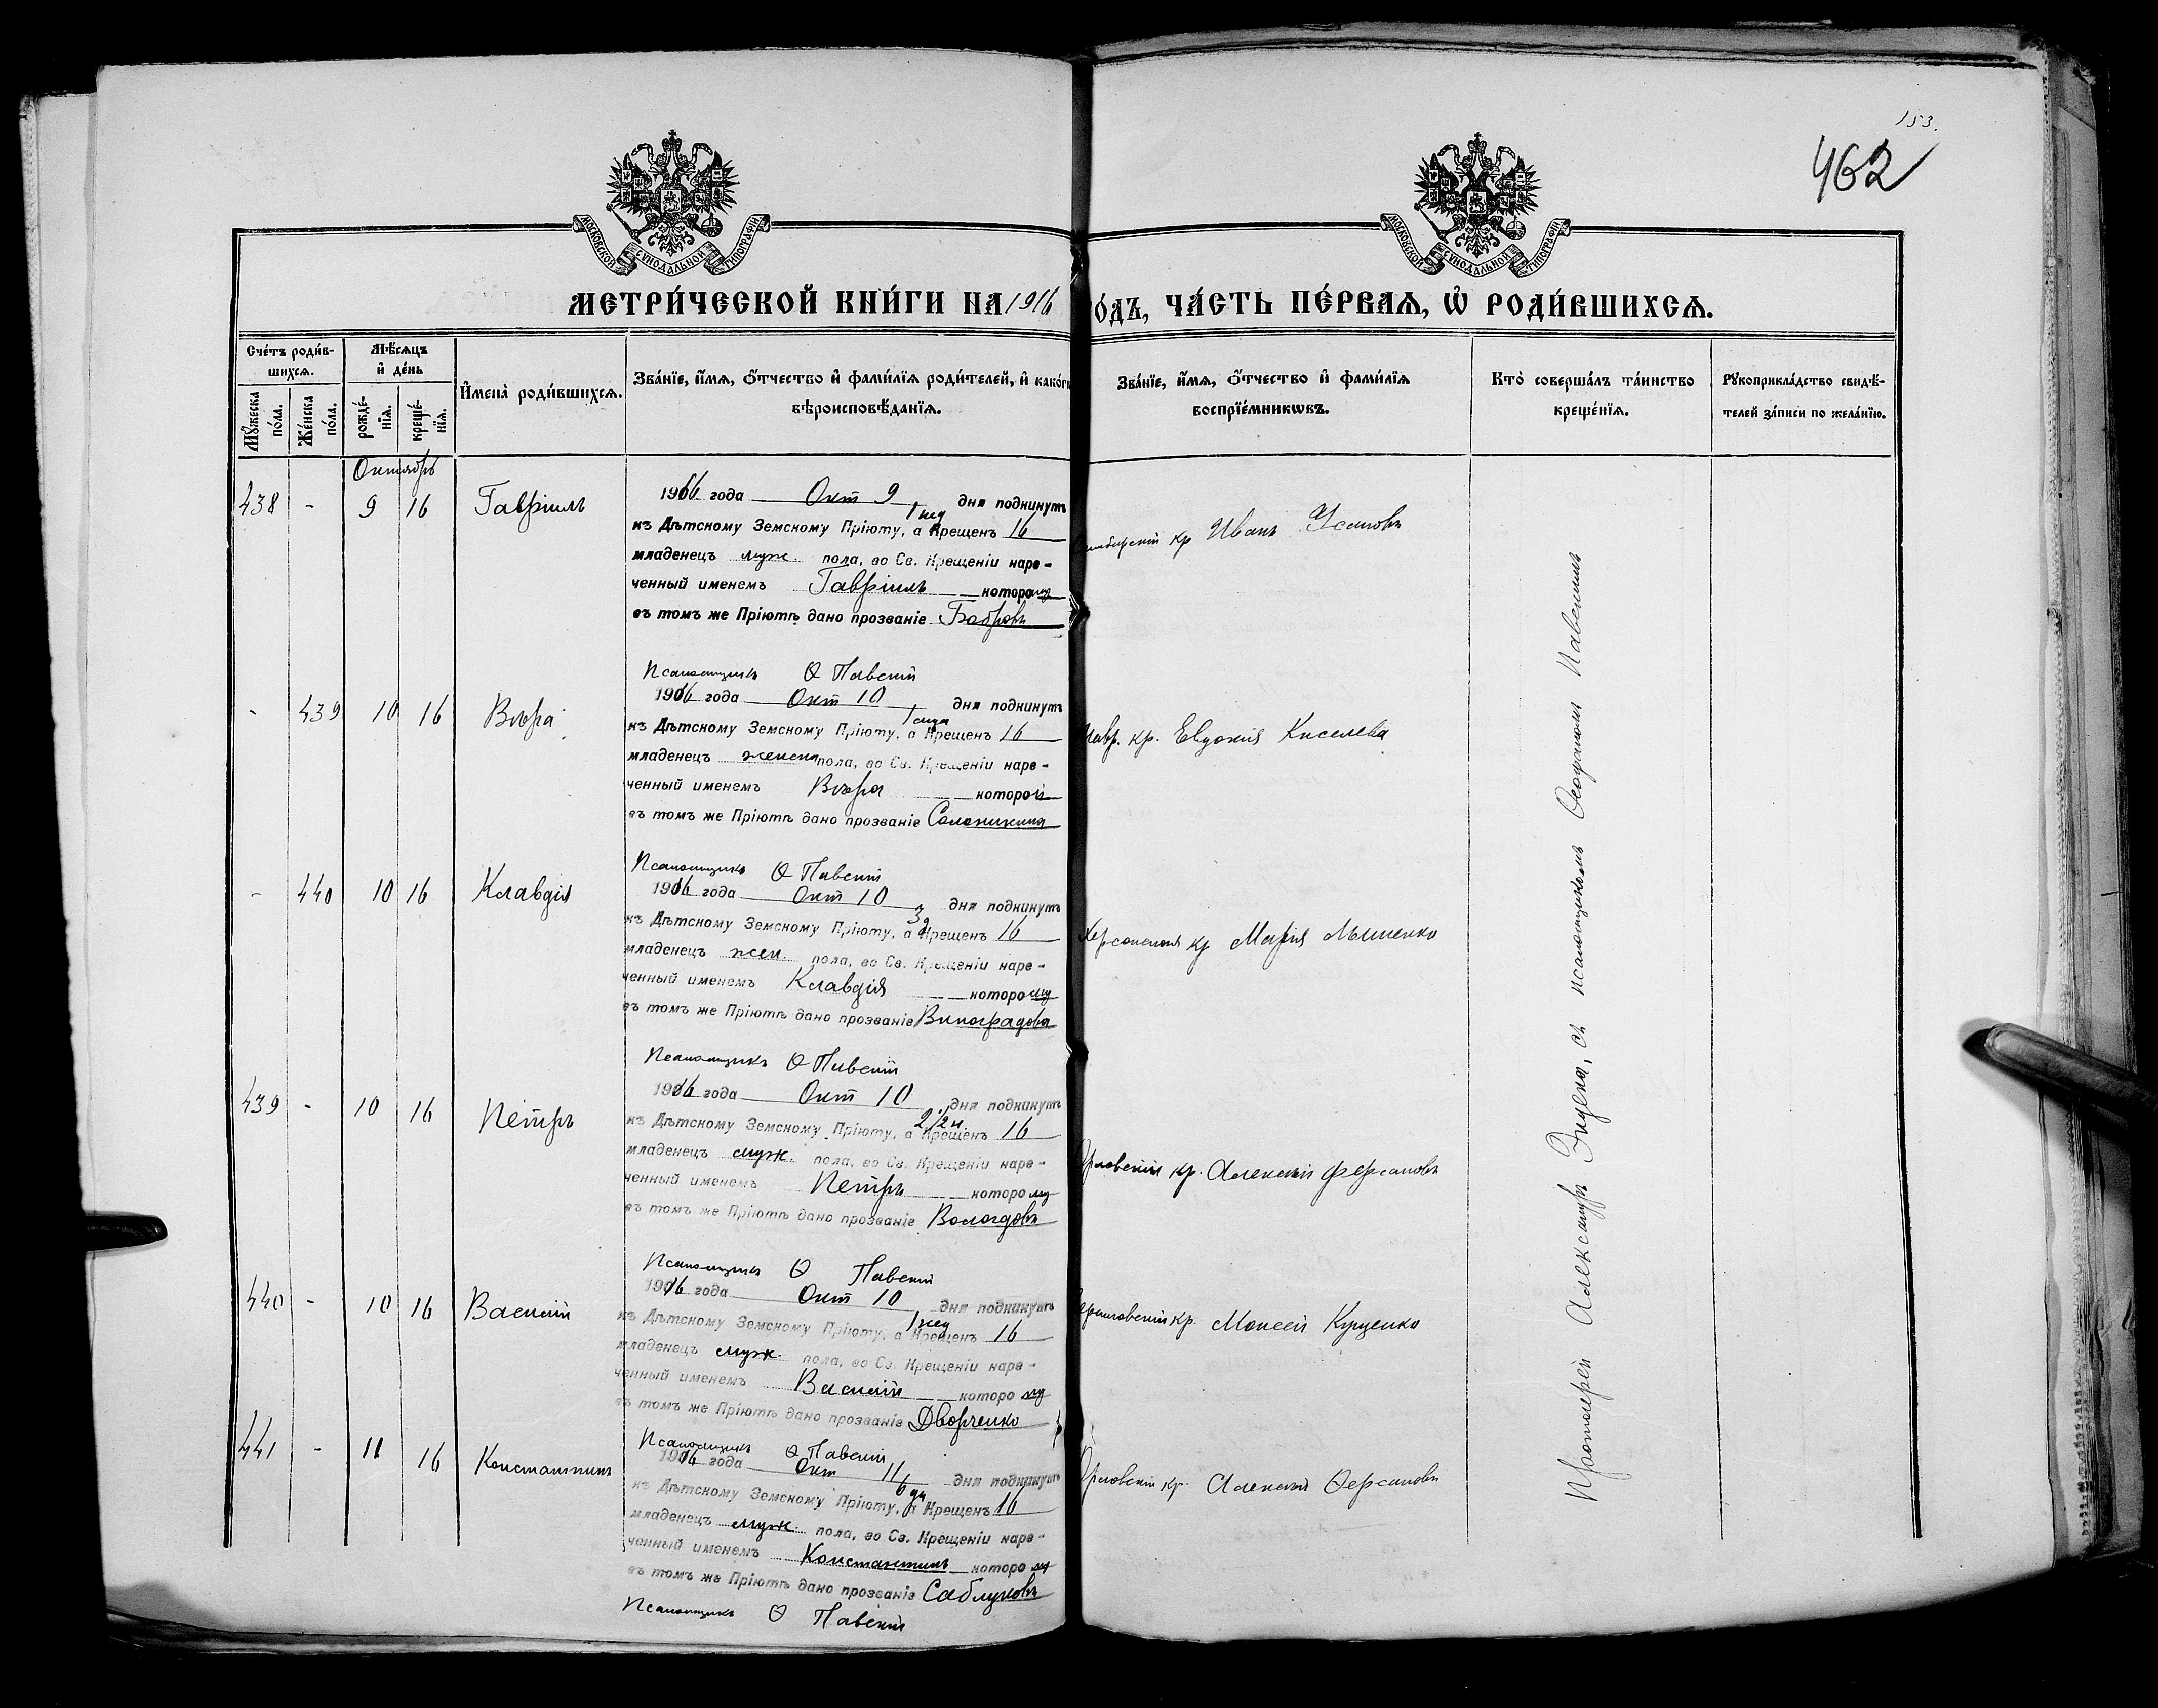 153.
462
МОСКОВСКОЙ СѴНОДАЛЬНОЙ ТИПОГРАФІИ
МОСКОВСКОЙ СѴНОДАЛЬНОЙ ТИПОГРАФІИ
МЕТРИ́ЧЕСКОЙ КНИ́ГИ НА 1916
ГО́ДЪ, ЧА́СТЬ ПЕ́РВАѦ, Ѡ РОДИ́ВШИХСѦ.
Сче́тъ роди́в-
шихсѧ.
Мѣ́сѧцъ
и де́нь
Имена̀ роди́вшихсѧ.
Зва́нїе, и́мѧ, о́тчество и фами́лїѧ роди́телей, и како́гѡ
вѣроисповѣ́данїѧ.
Зва́нїе, и́мѧ, о́тчество и фами́лїѧ
воспрїе́мникѡвъ.
Кто̀ соверша́лъ та́инство
креще́нїѧ.
Рꙋкоприкла́дство свидѣ́-
телей за́писи по жела́нїю.
Мꙋ́жеска
по́ла.
Же́нска
по́ла.
рожде́-
нїѧ.
креще́-
нїѧ.
Октябрь
438 - 9 16 Гавріилъ
1916 года Окт 9 дня подкинутъ
1 нед
къ Дѣтскому Земскому Пріюту, а Крещенъ 16
младенецъ муж. пола, во Св. Крещеніи наре-
ченный именемъ Гавріилъ которому
въ томъ же Пріютѣ дано прозваніе Бобровъ
Псаломщикъ Ѳ Павскій
Симбирскій кр Иванъ Усановъ
- 439 10 16 Вѣра
1916 года Окт 10 дня подкинутъ
къ Дѣтскому Земскому Пріюту, а Крещенъ 16
младенецъ женска пола, во Св. Крещеніи наре-
ченный именемъ Вѣра которой
въ томъ же Пріютѣ дано прозваніе
Псаломщикъ Ѳ Павскій
Тавр. кр. Евдокія Киселева
- 440 10 16 Клавдія
1916 года Окт 10 дня подкинутъ
къ Дѣтскому Земскому Пріюту, а Крещенъ 16
младенецъ жен. пола, во Св. Крещеніи наре-
ченный именемъ Клавдія которому
въ томъ же Пріютѣ дано прозваніе Виноградова
Псаломщикъ Ѳ Павскій
Херсонская кр Марія
439 - 10 16 Петръ
1916 года Окт 10 дня подкинутъ
2 1/2 н
къ Дѣтскому Земскому Пріюту, а Крещенъ 16
младенецъ муж. пола, во Св. Крещеніи наре-
ченный именемъ Петръ которому
въ томъ же Пріютѣ дано прозваніе Вологдовъ
Псаломщикъ Ѳ Павскій
Орловскій кр. Алексѣй Ферсановъ
440 - 10 16 Василій
1916 года Окт 10 дня подкинутъ
1 нед
къ Дѣтскому Земскому Пріюту, а Крещенъ 16
младенецъ муж. пола, во Св. Крещеніи наре-
ченный именемъ Василій которому
въ томъ же Пріютѣ дано прозваніе Дворченко
Псаломщикъ Ѳ Павскій
кр. Моисей Куценко
441 - 11 16 Константинъ
1916 года Окт 11 дня подкинутъ
къ Дѣтскому Земскому Пріюту, а Крещенъ 16
младенецъ муж. пола, во Св. Крещеніи наре-
ченный именемъ Константинъ которому
въ томъ же Пріютѣ дано прозваніе Саблуковъ
Псаломщикъ Ѳ Павскій
Орловскій кр. Алексѣй Ѳерсановъ
Протоіерей Александръ Эндека, съ псаломщикомъ Ѳеофаномъ Павскимъ